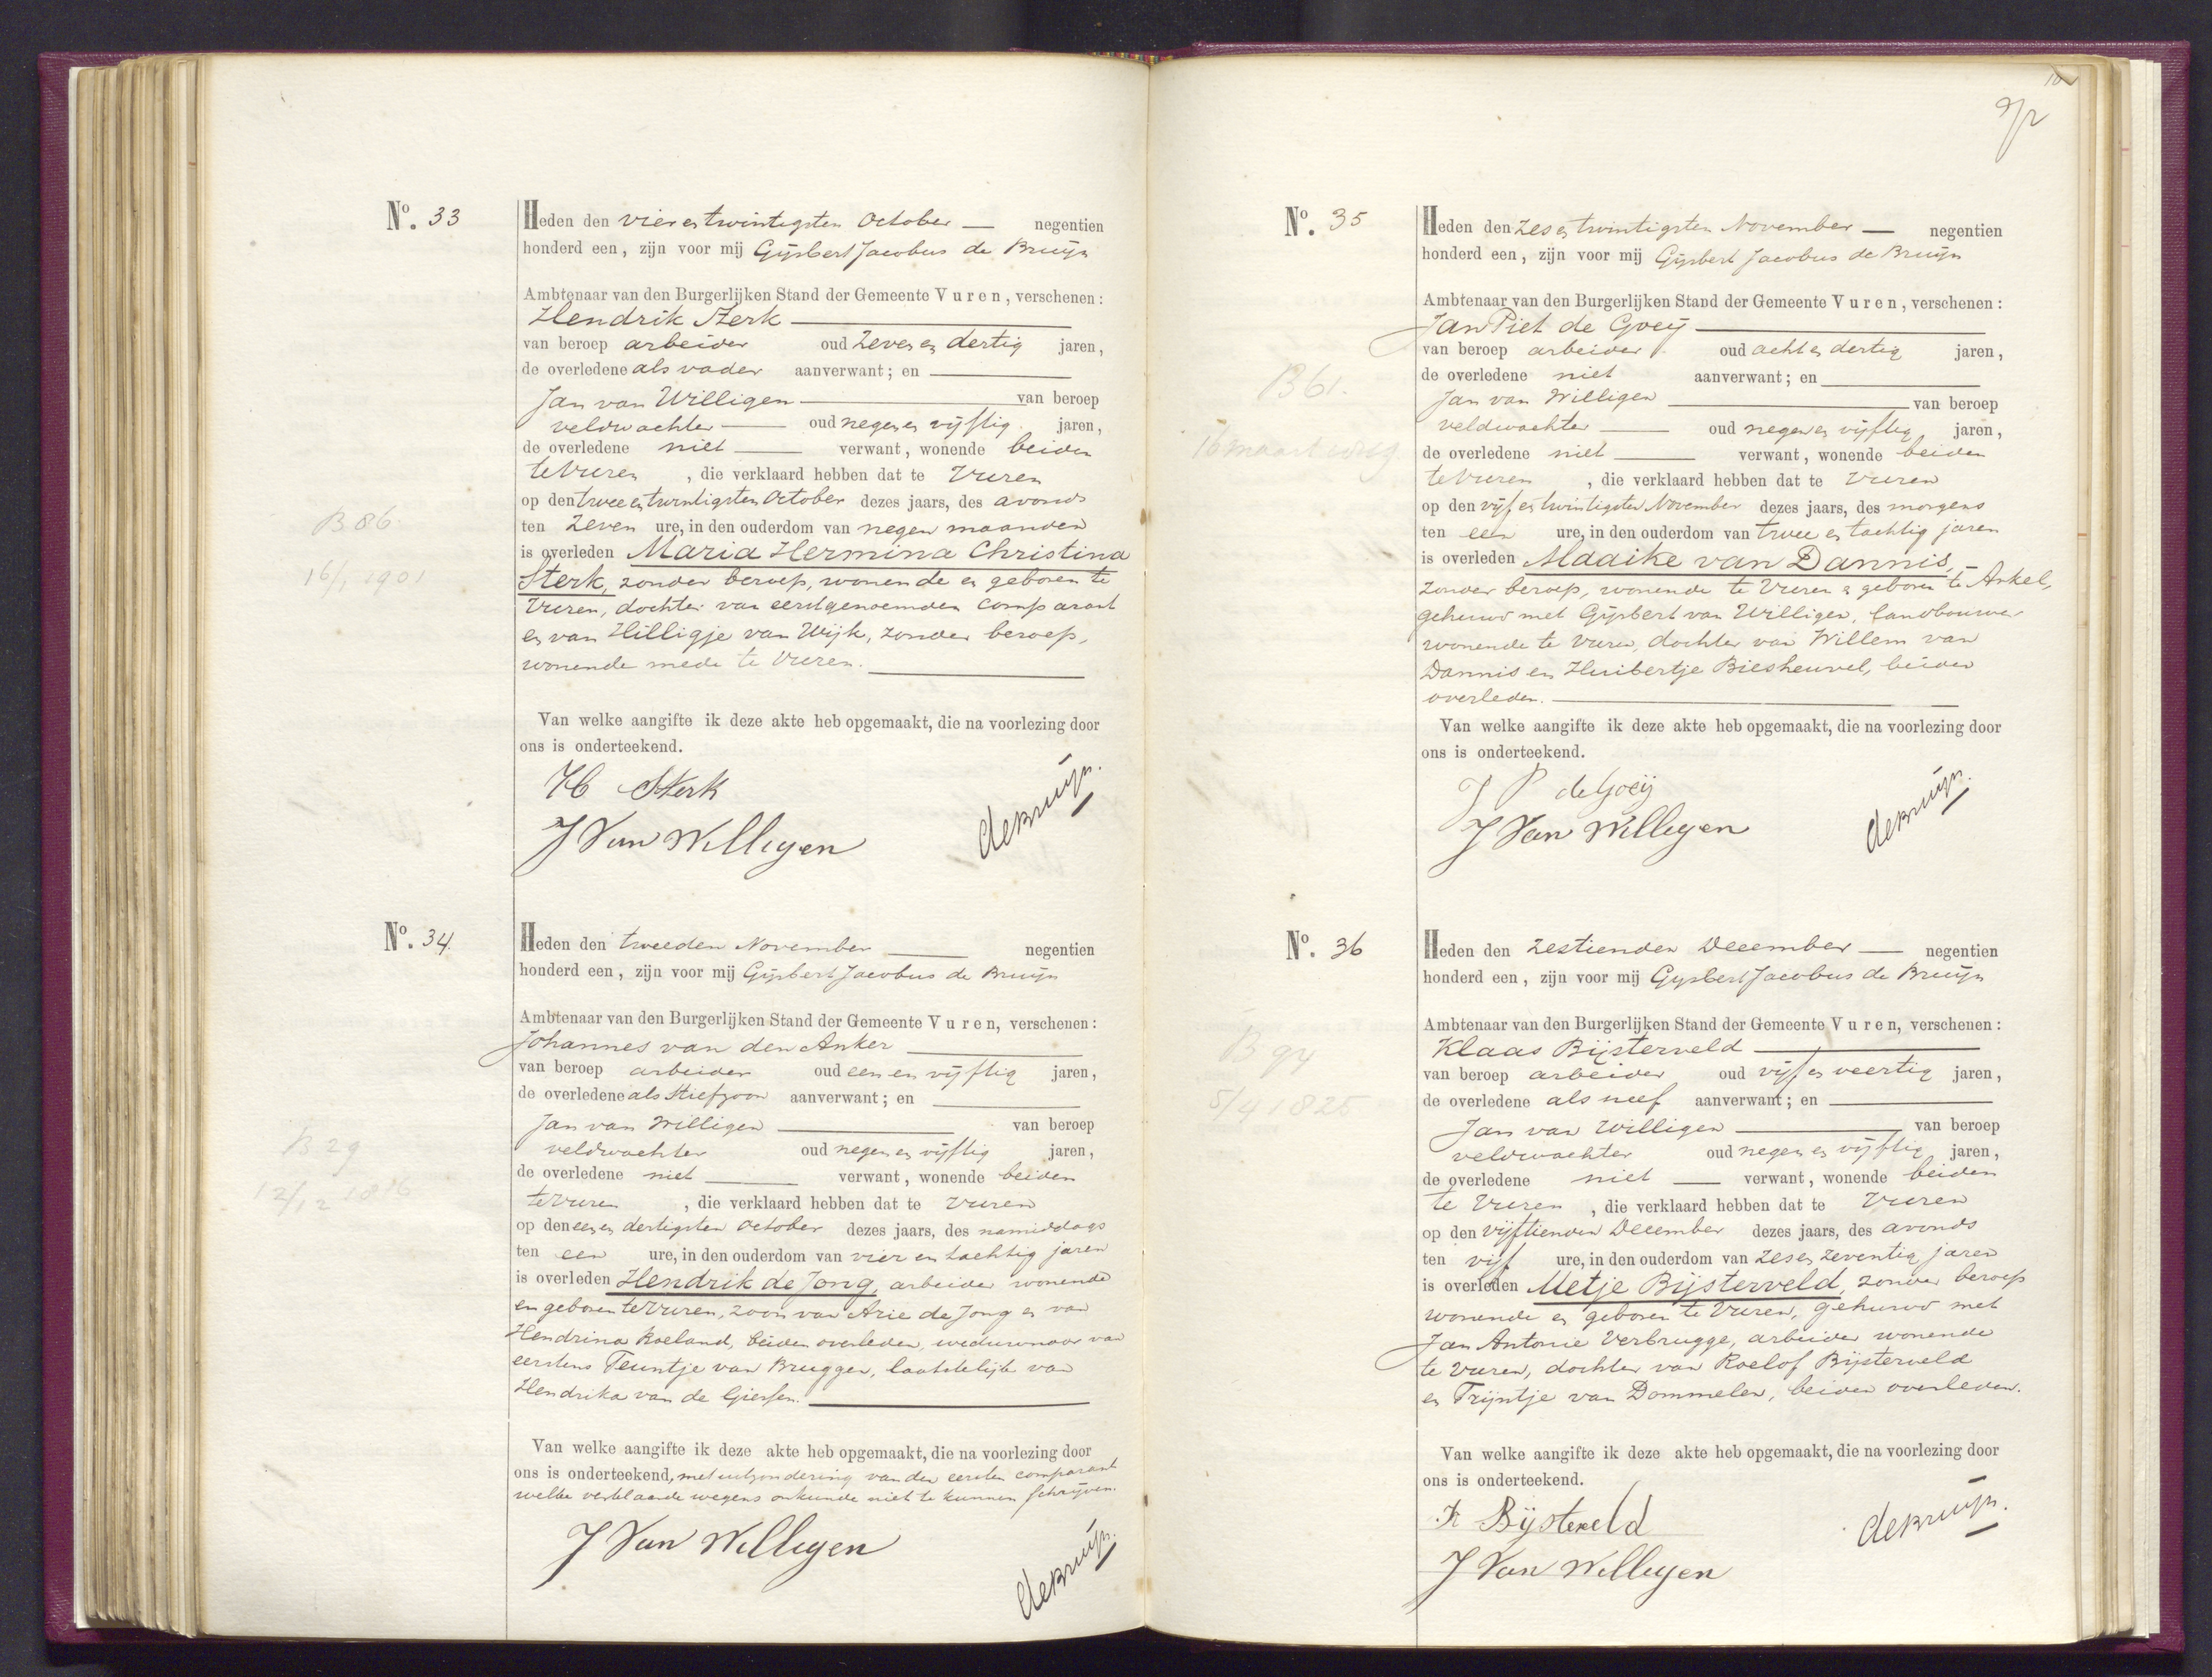 No. 33
Heden den vier en twintigsten October — negentien
honderd een, zijn voor mij Gijsbert Jacobus de Bruijn
Ambtenaar van den Burgerlijken Stand der Gemeente Vuren, verschenen:
Hendrik Sterk
van beroep arbeider oud zeven en dertig jaren,
de overledene als vader aanverwant; en
Jan van Willigen van beroep
veldwachter oud negen en vijftig jaren,
de overledene niet verwant, wonende beiden
te Vuren, die verklaard hebben dat te Vuren
op den twee en twintigsten October dezes jaars, des avonds
ten zeven ure, in den ouderdom van negen maanden
is overleden Maria Hermina Christina
Sterk, zonder beroep, wonende en geboren te
Vuren, dochter van eerstgenoemden comparant
en van Hilligje van Wijk, zonder beroep,
wonende mede te Vuren.
Van welke aangifte ik deze akte heb opgemaakt, die na voorlezing door
ons is onderteekend.
H Sterk
J Van Willigen
de Bruijn.
B 86.
16/1 1901
No. 34.
Heden den tweeden November negentien
honderd een, zijn voor mij Gijsbert Jacobus de Bruijn
Ambtenaar van den Burgerlijken Stand der Gemeente Vuren, verschenen:
Johannes van den Anker
van beroep arbeider oud een en vijftig jaren,
de overledene als stiefzoon aanverwant; en
Jan van Willigen van beroep
veldwachter oud negen en vijftig jaren,
de overledene niet verwant, wonende beiden
te Vuren, die verklaard hebben dat te Vuren
op den een en dertigsten October dezes jaars, des namiddags
ten een ure, in den ouderdom van vier en tachtig jaren
is overleden Hendrik de Jong, arbeider wonende
en geboren te Vuren, zoon van Arie de Jong en van
Hendrina Roeland, beiden overleden, weduwnaar van
eerstens Teuntje van Bruggen, laatstelijk van
Hendrika van de Giessen.
Van welke aangifte ik deze akte heb opgemaakt, die na voorlezing door
ons is onderteekend, met uitzondering van den eersten comparant
welke verklaarde wegens onkunde niet te kunnen schrijven.
J Van Willigen
de Bruijn.
B 29
No. 35
Heden den zes en twintigsten November — negentien
honderd een, zijn voor mij Gijsbert Jacobus de Bruijn
Ambtenaar van den Burgerlijken Stand der Gemeente Vuren, verschenen:
Jan Piet de Goeij
van beroep arbeider oud acht en dertig jaren,
de overledene niet aanverwant; en
Jan van Willigen van beroep
veldwachter oud negen en vijftig jaren,
de overledene niet verwant, wonende beiden
te Vuren, die verklaard hebben dat te Vuren
op den vijf en twintigsten November dezes jaars, des morgens
ten een ure, in den ouderdom van twee en tachtig jaren
is overleden Maaike van Dannis,
zonder beroep, wonende te Vuren en geboren te Arkel,
gehuwd met Gijsbert van Willigen, landbouwer
wonende te Vuren, dochter van Willem van
Dannis en Huibertje Biesheuvel, beiden
overleden.
Van welke aangifte ik deze akte heb opgemaakt, die na voorlezing door
ons is onderteekend.
J P de Goeij
J Van Willigen
de Bruijn.
B 61.
No. 36
Heden den zestienden December — negentien
honderd een, zijn voor mij Gijsbert Jacobus de Bruijn
Ambtenaar van den Burgerlijken Stand der Gemeente Vuren, verschenen:
Klaas Bijsterveld
van beroep arbeider oud vijf en veertig jaren,
de overledene als neef aanverwant; en
Jan van Willigen van beroep
veldwachter oud negen en vijftig jaren,
de overledene niet verwant, wonende beiden
te Vuren, die verklaard hebben dat te Vuren
op den vijftienden December dezes jaars, des avonds
ten vijf ure, in den ouderdom van zes en zeventig jaren
is overleden Metje Bijsterveld, zonder beroep
wonende en geboren te Vuren, gehuwd met
Jan Antonie Verbrugge, arbeider wonende
te Vuren, dochter van Roelof Bijsterveld
en Trijntje van Dommelen, beiden overleden.
Van welke aangifte ik deze akte heb opgemaakt, die na voorlezing door
ons is onderteekend.
K Bijsterveld
J Van Willigen
de Bruijn.
B 94
5/4 1825